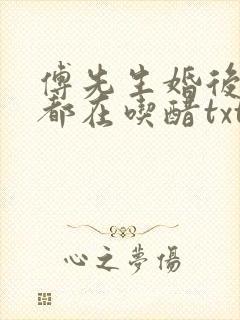 傅先生婚後
都在喫醋txt
心之夢傷